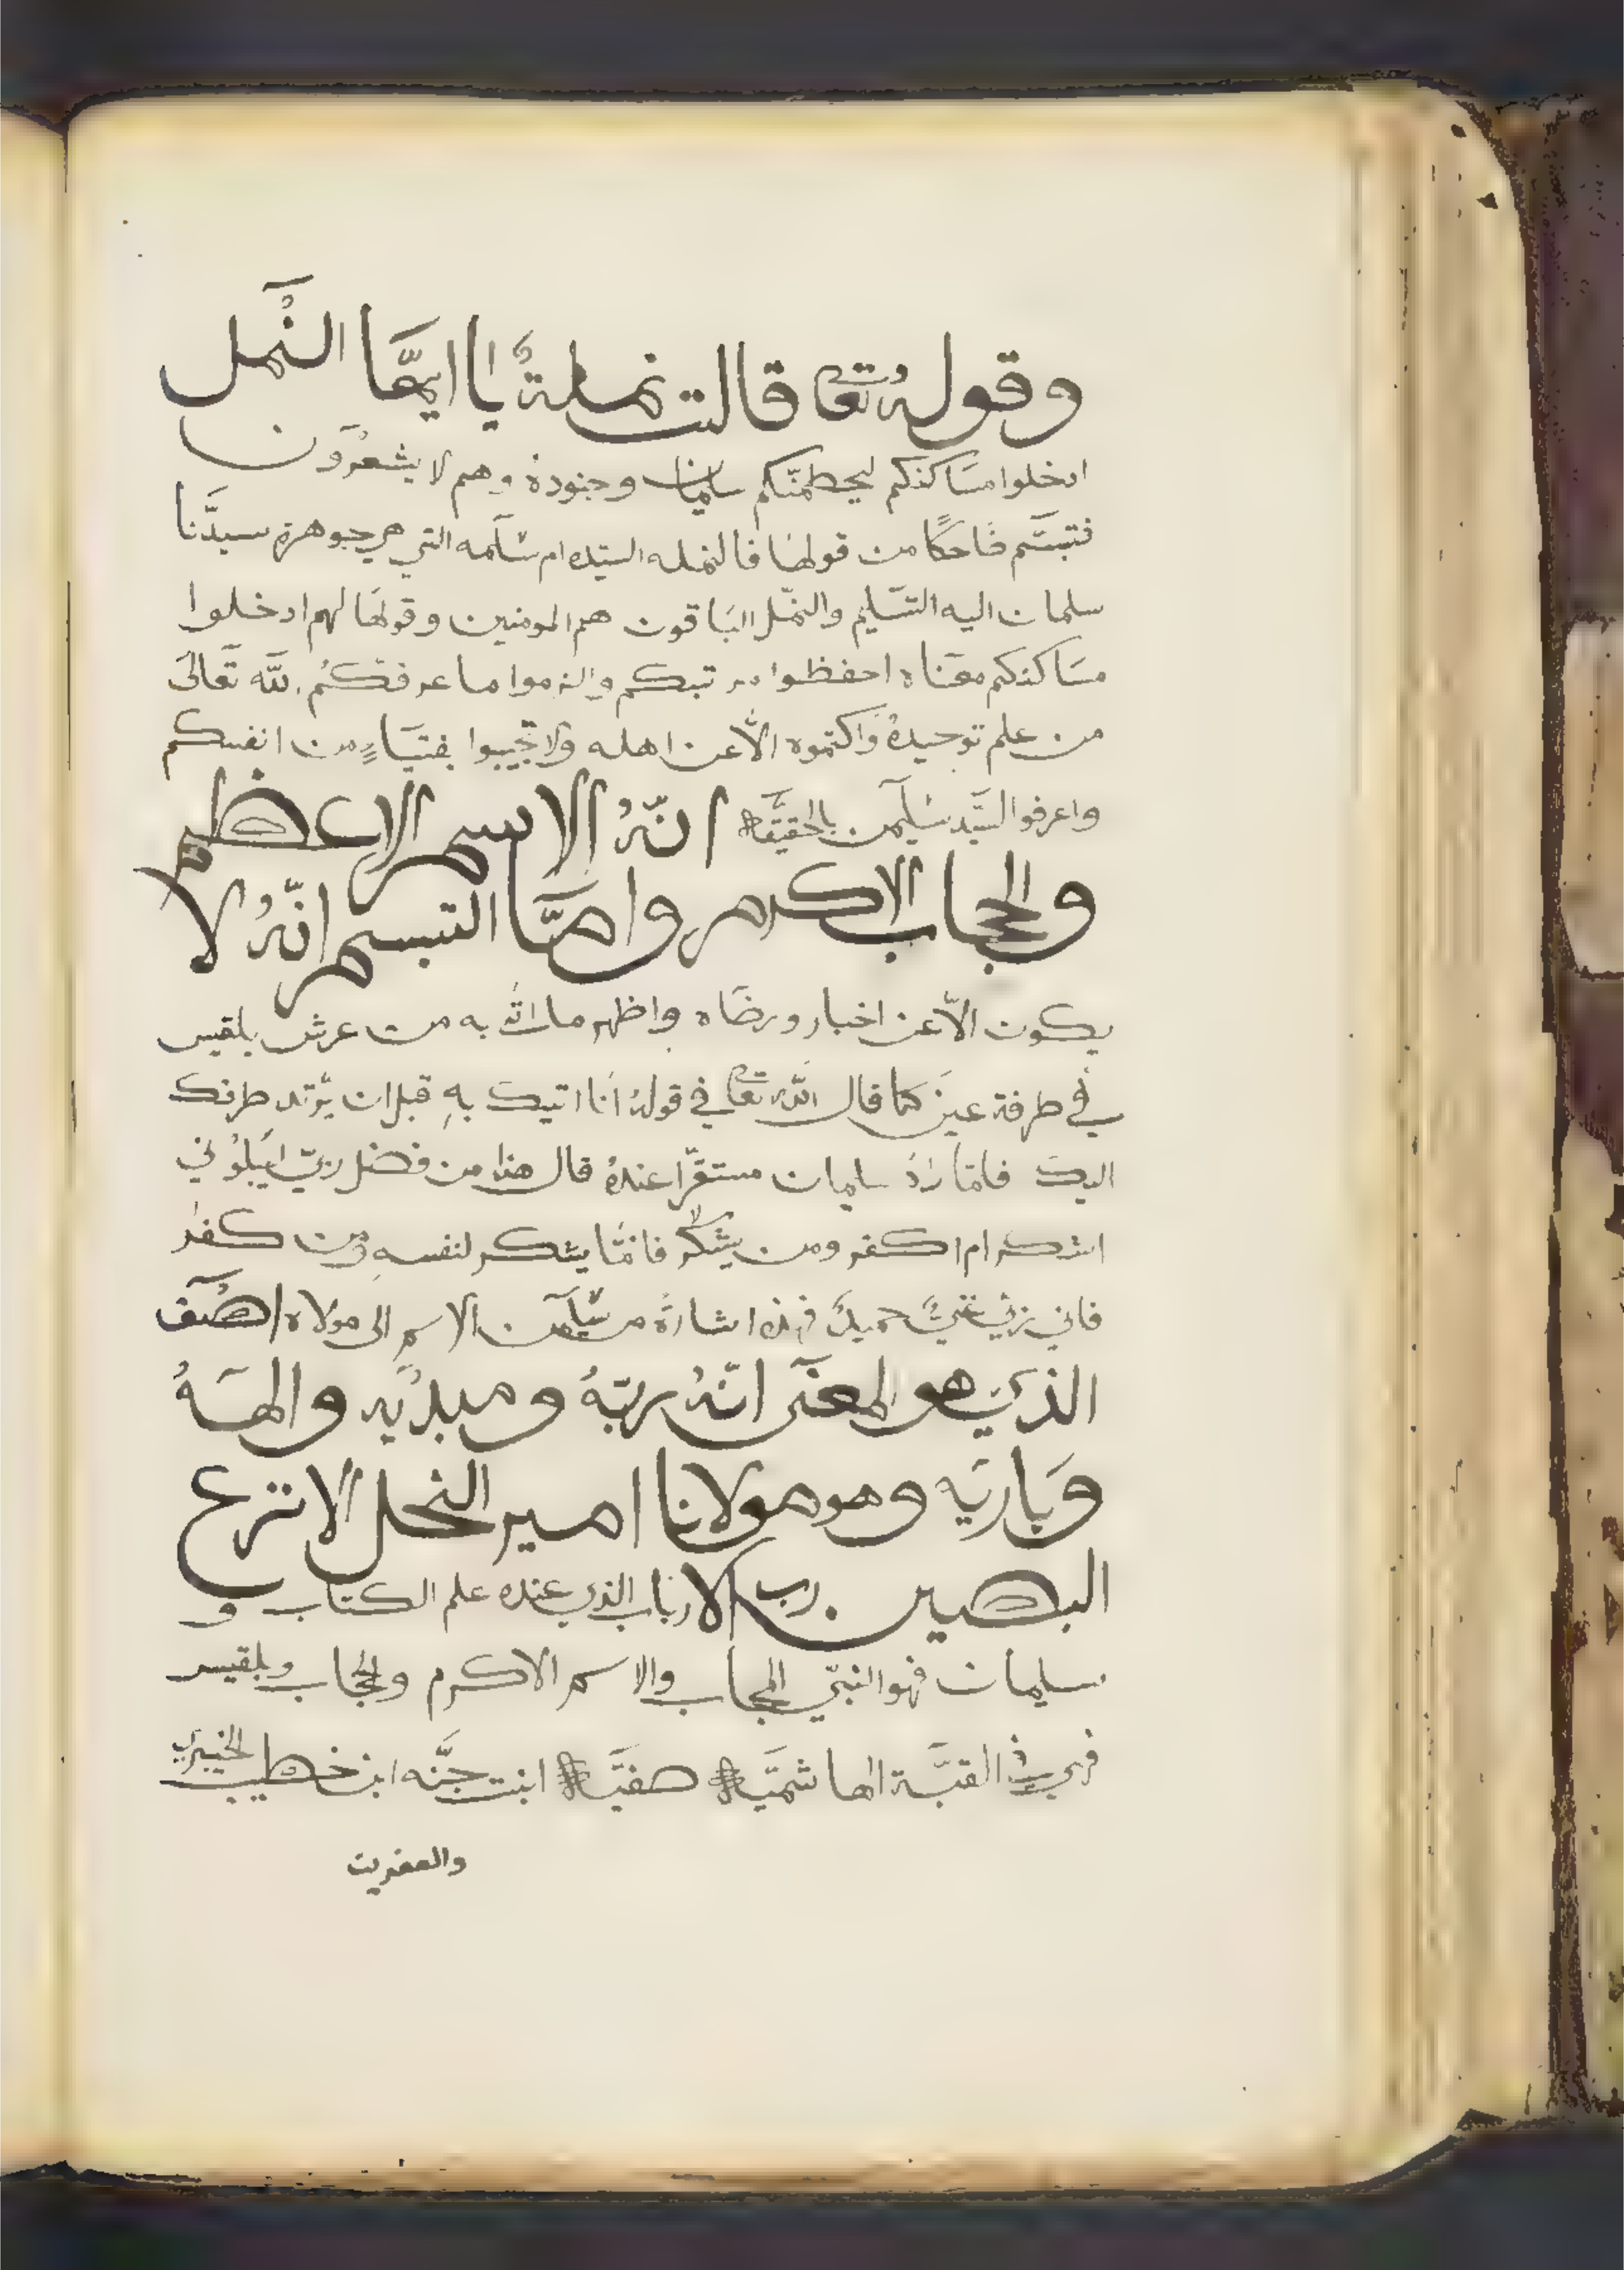 وقوله تعا قالت نملة يا ايها النمل
ادخلوا مساكنكم ليحطمنّكم سليمان وجنوده وهم لا يشعرون
فتبسّم ضاحكًا من قولها فالنمله السيّده ام سلمه التي هي جوهرة سيدنا
سلمان اليه التسليم والنمل الباقون هم المومنين وقولها لهم ادخلوا
مساكنكم معناه احفظوا مرتبكم والزموا ما عرفكم الله تعالى
من علم توحيده واكتموه الّا عن اهله ولا تجيبوا بفتياءٍ من انفسكم
واعرفوا السيّد سليمن بالحقيقة انّهُ الاسم الاعظم
والحجاب الاكرم وامّا التبسم انّهُ لا
يكون الّا عن اخبار ورضاه واظهر ما اتٰه به من عرش بلقيس
في طرفة عين كما قال اللّه تعا في قوله انا اتيك بهِ قبل ان يرتد طرفك
اليك فلمّا راهُ سليمان مستقرّا عندهُ قال هذا من فضل ربيّ ليبلُوني
اشكر ام اكفر ومن يشكر فانمّا يشكر لنفسهِ ومن كفر
فاني ربّي غنيٌ حميدٌ فهذه اشارة من سليمن الاسم الى مولاه اصف
الذي هو المعنى انّهُ ربّهُ ومبديه والههُ
وباريه وهو مولانا امير النحل الانزع
البصين رب الارباب الذي عنده علم الكتاب و
سليمان فهو النبيّ الحجاب والاسم الاكرم والحجاب وبلقيس
فهي في القبّة الهاشميّة صفيّة ابنت جنّه ابن خطيب الخيبري
والعفريت